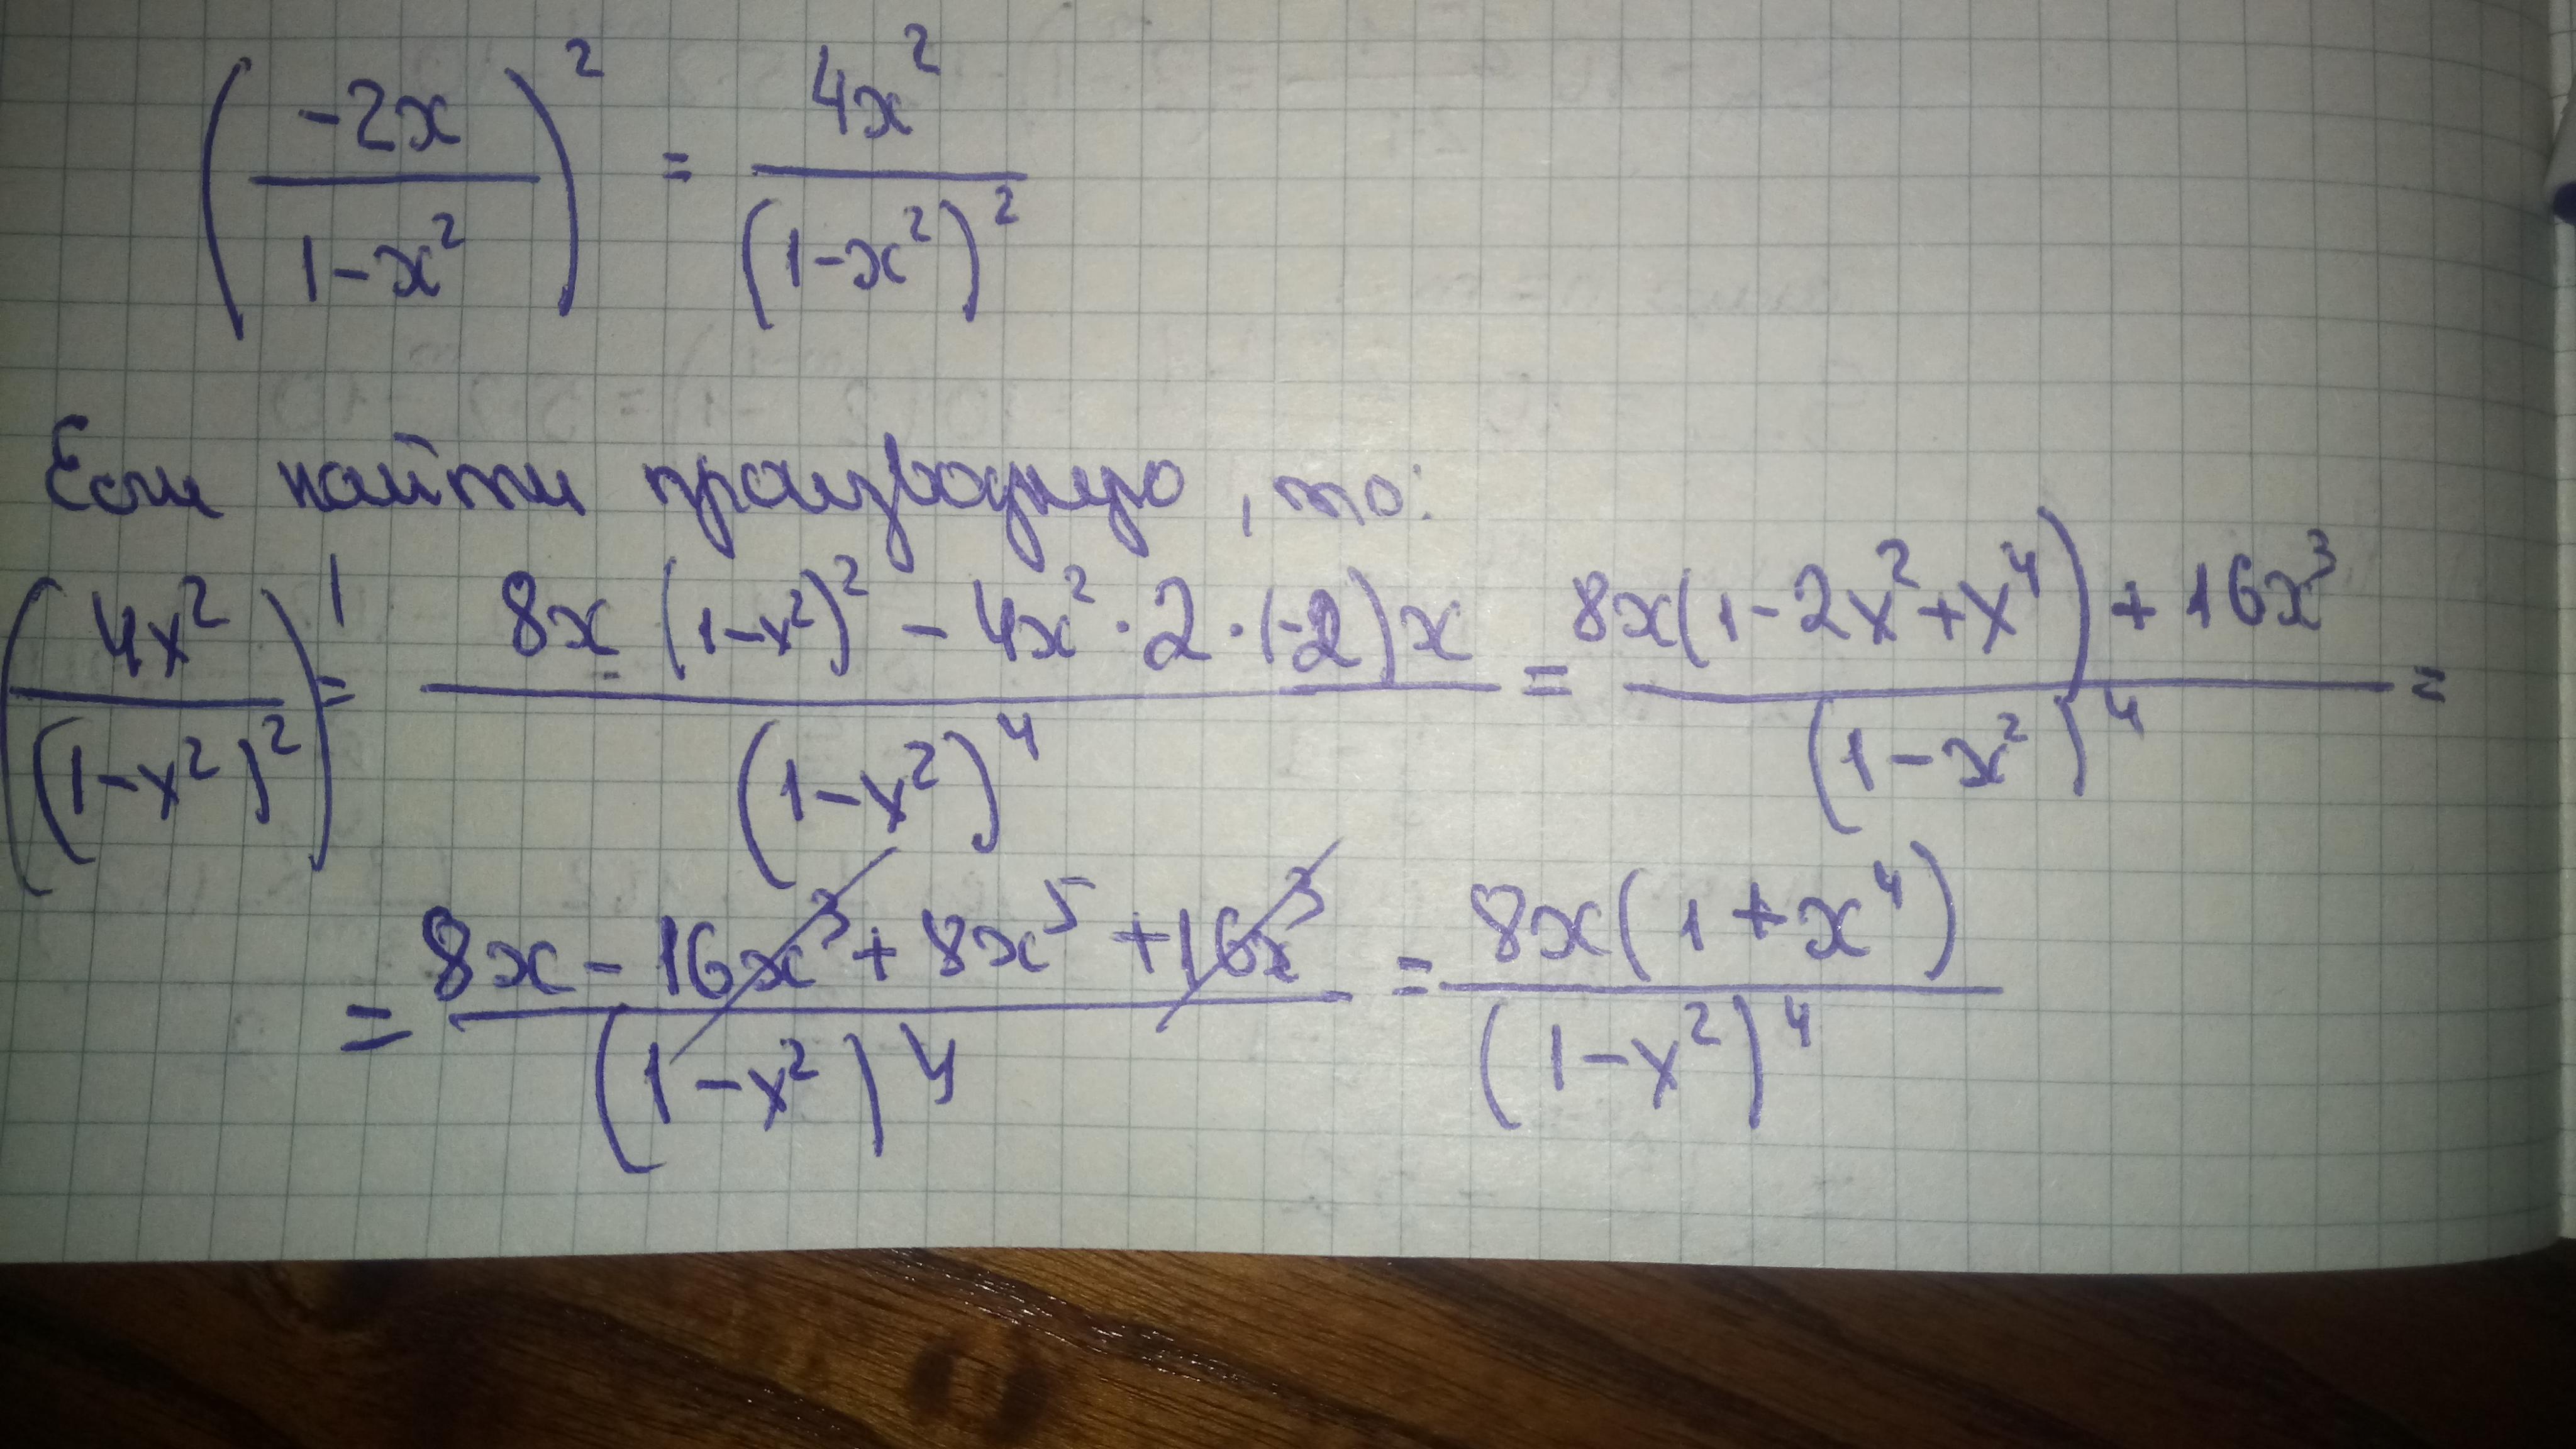 (-2x / 1-x²)² = 4x² / (1-x²)²
Если найти производную, то:
(4x² / (1-x²)²)' = 8x(1-x²)² - 4x²·2·(-2)x / (1-x²)⁴ = 8x(1-2x²+x⁴)+16x³ / (1-x²)⁴ =
= 8x-16x³+8x⁵+16x³ / (1-x²)⁴ = 8x(1+x⁴) / (1-x²)⁴